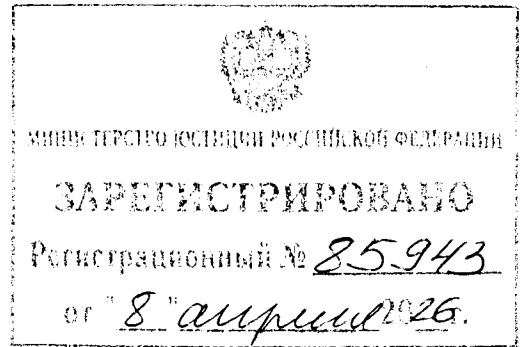 МИНИСТЕРСТВО ЮСТИЦИИ РОССИЙСКОЙ ФЕДЕРАЦИИ
ЗАРЕГИСТРИРОВАНО
Регистрационный № 85943
от "8" апреля 2026г.